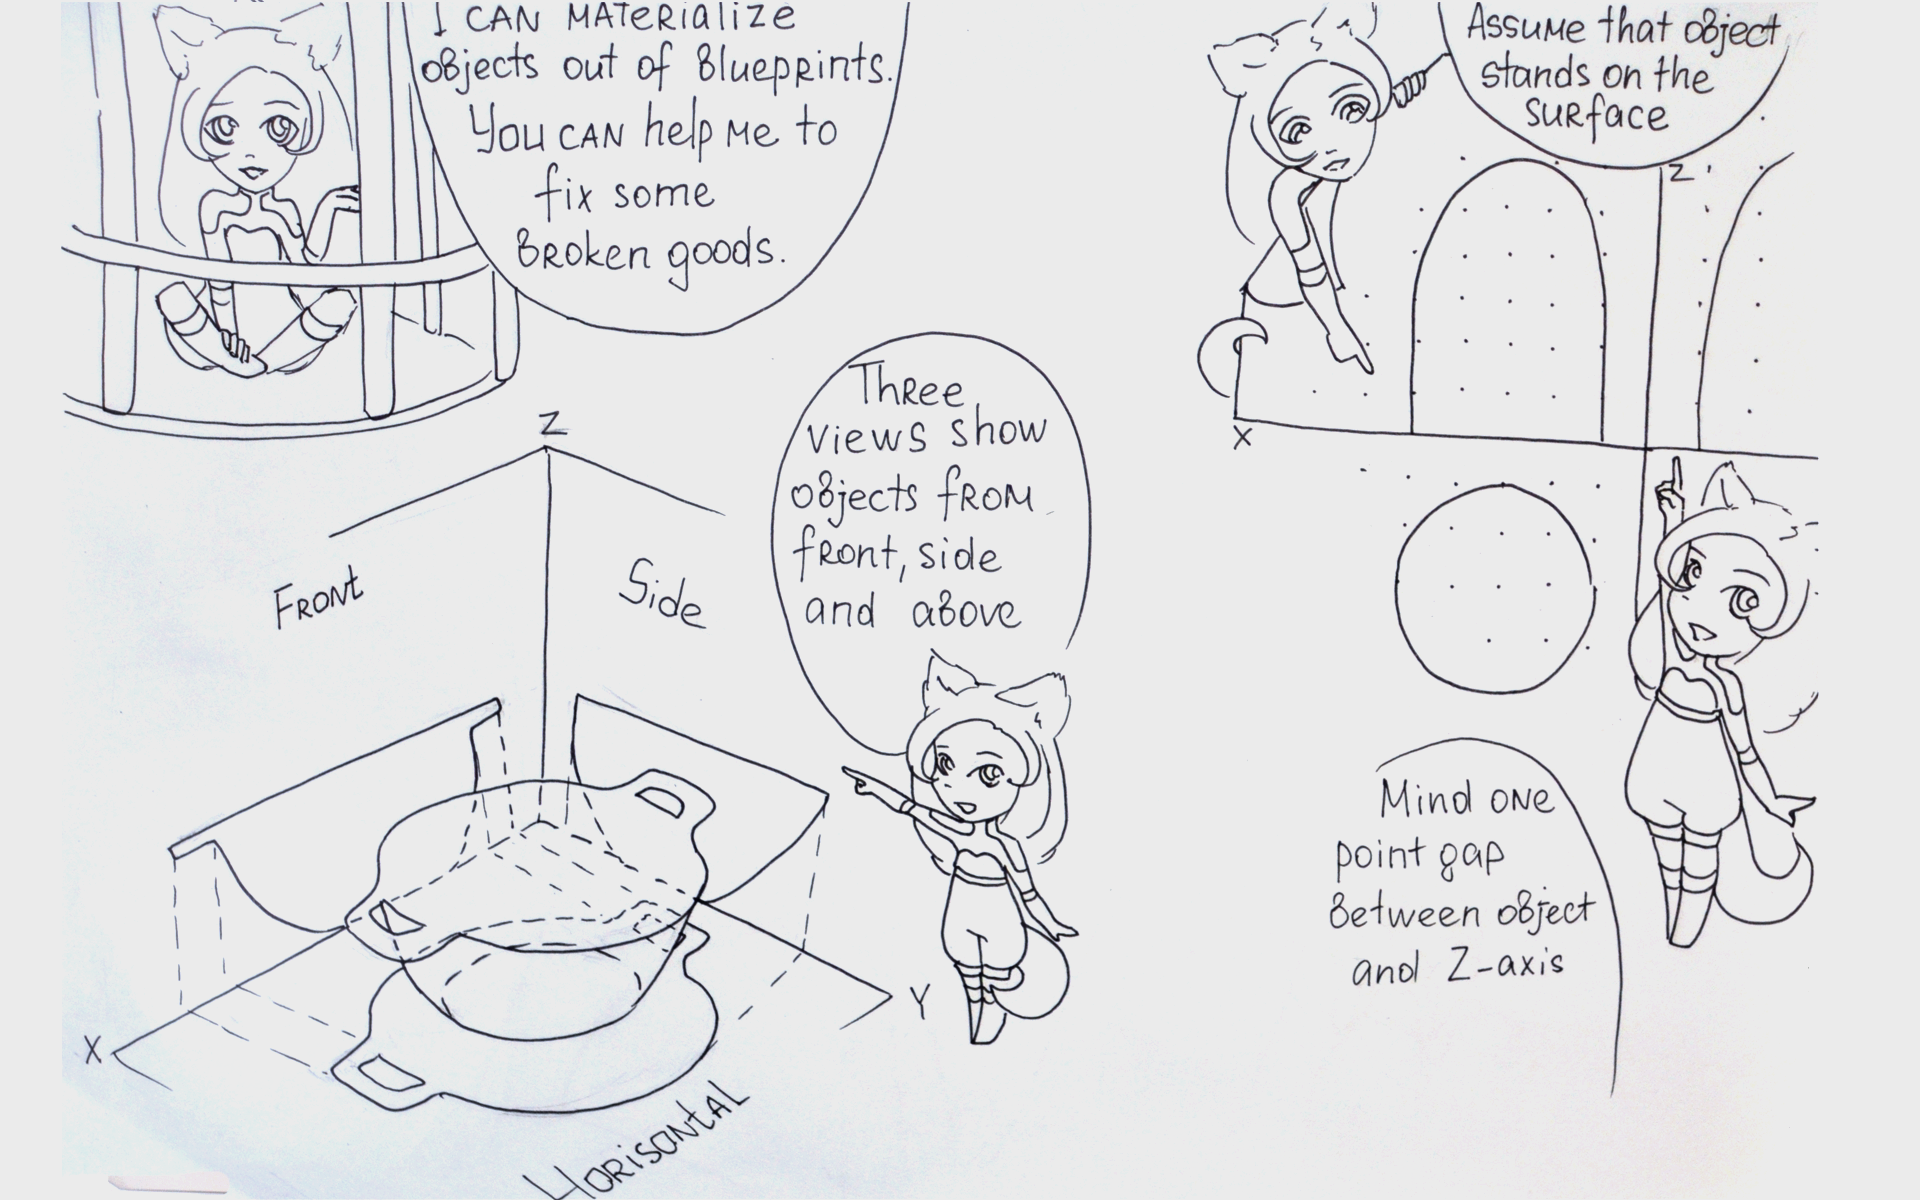 I CAN MATERIALIZE
OBJECTS OUT OF BLUEPRINTS.
YOU CAN help ME to
fix some
BROKEN goods.
Z
FRONT
Side
X
Y
HORISONTAL
THREE
views show
OBjects fROM
fRont, side
and aBove
Assume that oBject
stands on the
suRface
Z
X
Mind one
point gap
Between oBject
and Z-axis